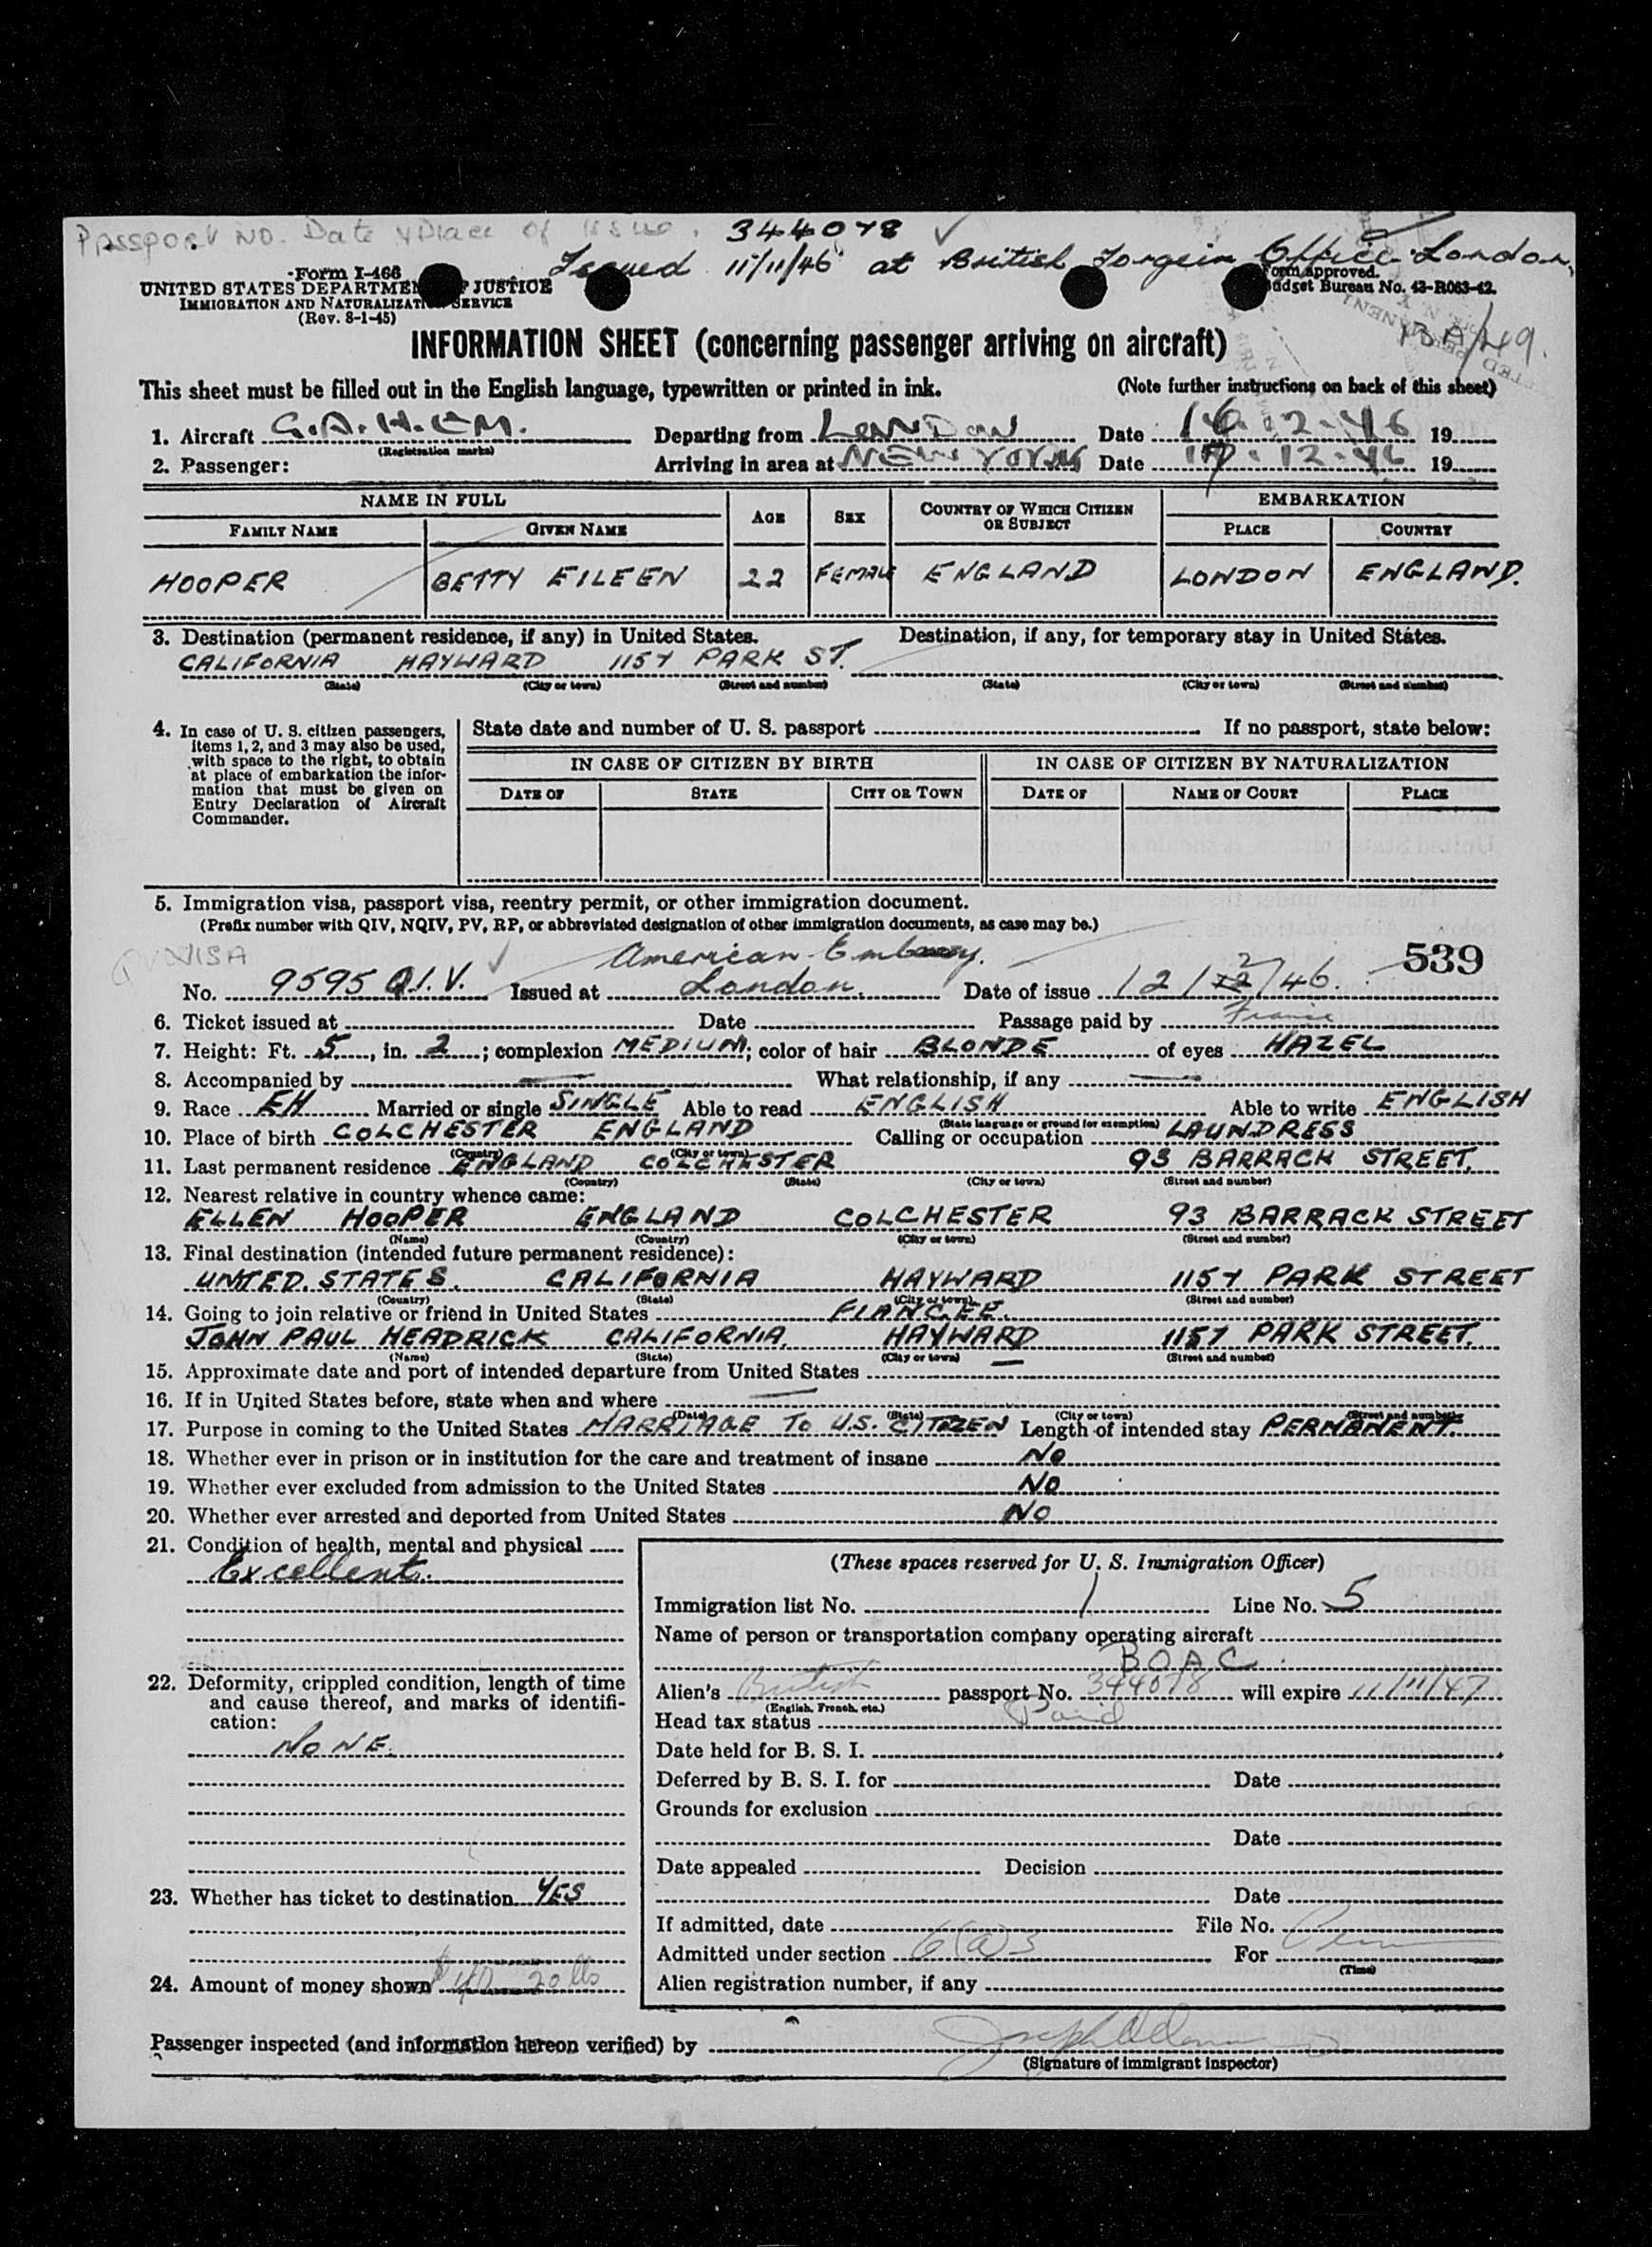 Passport No. Date & Place of issue. 344078
Issued 11/11/46 at British Forgein Office London,
Form I-466
UNITED STATES DEPARTMENT OF JUSTICE
IMMIGRATION AND NATURALIZATION SERVICE
(Rev. 8-1-45)
Form approved.
Budget Bureau No. 43-R063-42.
INFORMATION SHEET (concerning passenger arriving on aircraft)
This sheet must be filled out in the English language, typewritten or printed in ink. (Note further instructions on back of this sheet)
1. Aircraft G.A.H.EM. Departing from LONDON Date 16.12.46 19
(Registration marks)
2. Passenger: Arriving in area at NEW YORK Date 17.12.46 19
NAME IN FULL AGE SEX COUNTRY OF WHICH CITIZEN OR SUBJECT EMBARKATION
FAMILY NAME GIVEN NAME PLACE COUNTRY
HOOPER BETTY EILEEN 22 FEMALE ENGLAND LONDON ENGLAND.
3. Destination (permanent residence, if any) in United States. Destination, if any, for temporary stay in United States.
CALIFORNIA HAYWARD 1157 PARK ST.
(State) (City or town) (Street and number) (State) (City or town) (Street and number)
4. In case of U. S. citizen passengers,
items 1, 2, and 3 may also be used,
with space to the right, to obtain
at place of embarkation the infor-
mation that must be given on
Entry Declaration of Aircraft
Commander.
State date and number of U. S. passport If no passport, state below:
IN CASE OF CITIZEN BY BIRTH IN CASE OF CITIZEN BY NATURALIZATION
DATE OF STATE CITY OR TOWN DATE OF NAME OF COURT PLACE
5. Immigration visa, passport visa, reentry permit, or other immigration document.
(Prefix number with QIV, NQIV, PV, RP, or abbreviated designation of other immigration documents, as case may be.)
VISA American Embassy. 539
No. 9595 Q.I.V. Issued at London. Date of issue 12/12/46.
6. Ticket issued at Date Passage paid by
7. Height: Ft. 5, in. 2; complexion MEDIUM; color of hair BLONDE of eyes HAZEL
8. Accompanied by What relationship, if any
9. Race EH Married or single SINGLE Able to read ENGLISH Able to write ENGLISH
(State language or ground for exemption)
10. Place of birth COLCHESTER ENGLAND Calling or occupation LAUNDRESS
(Country) (City or town)
11. Last permanent residence ENGLAND COLCHESTER 93 BARRACK STREET.
(Country) (State) (City or town) (Street and number)
12. Nearest relative in country whence came:
ELLEN HOOPER ENGLAND COLCHESTER 93 BARRACK STREET
(Name) (Country) (City or town) (Street and number)
13. Final destination (intended future permanent residence):
UNITED. STATES. CALIFORNIA HAYWARD 1157 PARK STREET
(Country) (State) (City or town) (Street and number)
14. Going to join relative or friend in United States FIANCEE.
JOHN PAUL HEADRICK CALIFORNIA. HAYWARD 1157 PARK STREET.
(Name) (State) (City or town) (Street and number)
15. Approximate date and port of intended departure from United States
16. If in United States before, state when and where
(Date) (State) (City or town) (Street and number)
17. Purpose in coming to the United States MARRIAGE TO U.S. CITIZEN Length of intended stay PERMANENT.
18. Whether ever in prison or in institution for the care and treatment of insane NO
19. Whether ever excluded from admission to the United States NO
20. Whether ever arrested and deported from United States NO
21. Condition of health, mental and physical
Excellent.
22. Deformity, crippled condition, length of time
and cause thereof, and marks of identifi-
cation:
NONE.
23. Whether has ticket to destination YES
24. Amount of money shown
(These spaces reserved for U. S. Immigration Officer)
Immigration list No. 1 Line No. 5
Name of person or transportation company operating aircraft
B.O.A.C.
Alien's British passport No. 344078 will expire 11/11/47
(English, French, etc.)
Head tax status Paid
Date held for B. S. I.
Deferred by B. S. I. for Date
Grounds for exclusion
Date
Date appealed Decision
Date
If admitted, date File No.
Admitted under section 6(a)3 For
(Time)
Alien registration number, if any
Passenger inspected (and information hereon verified) by
(Signature of immigrant inspector)